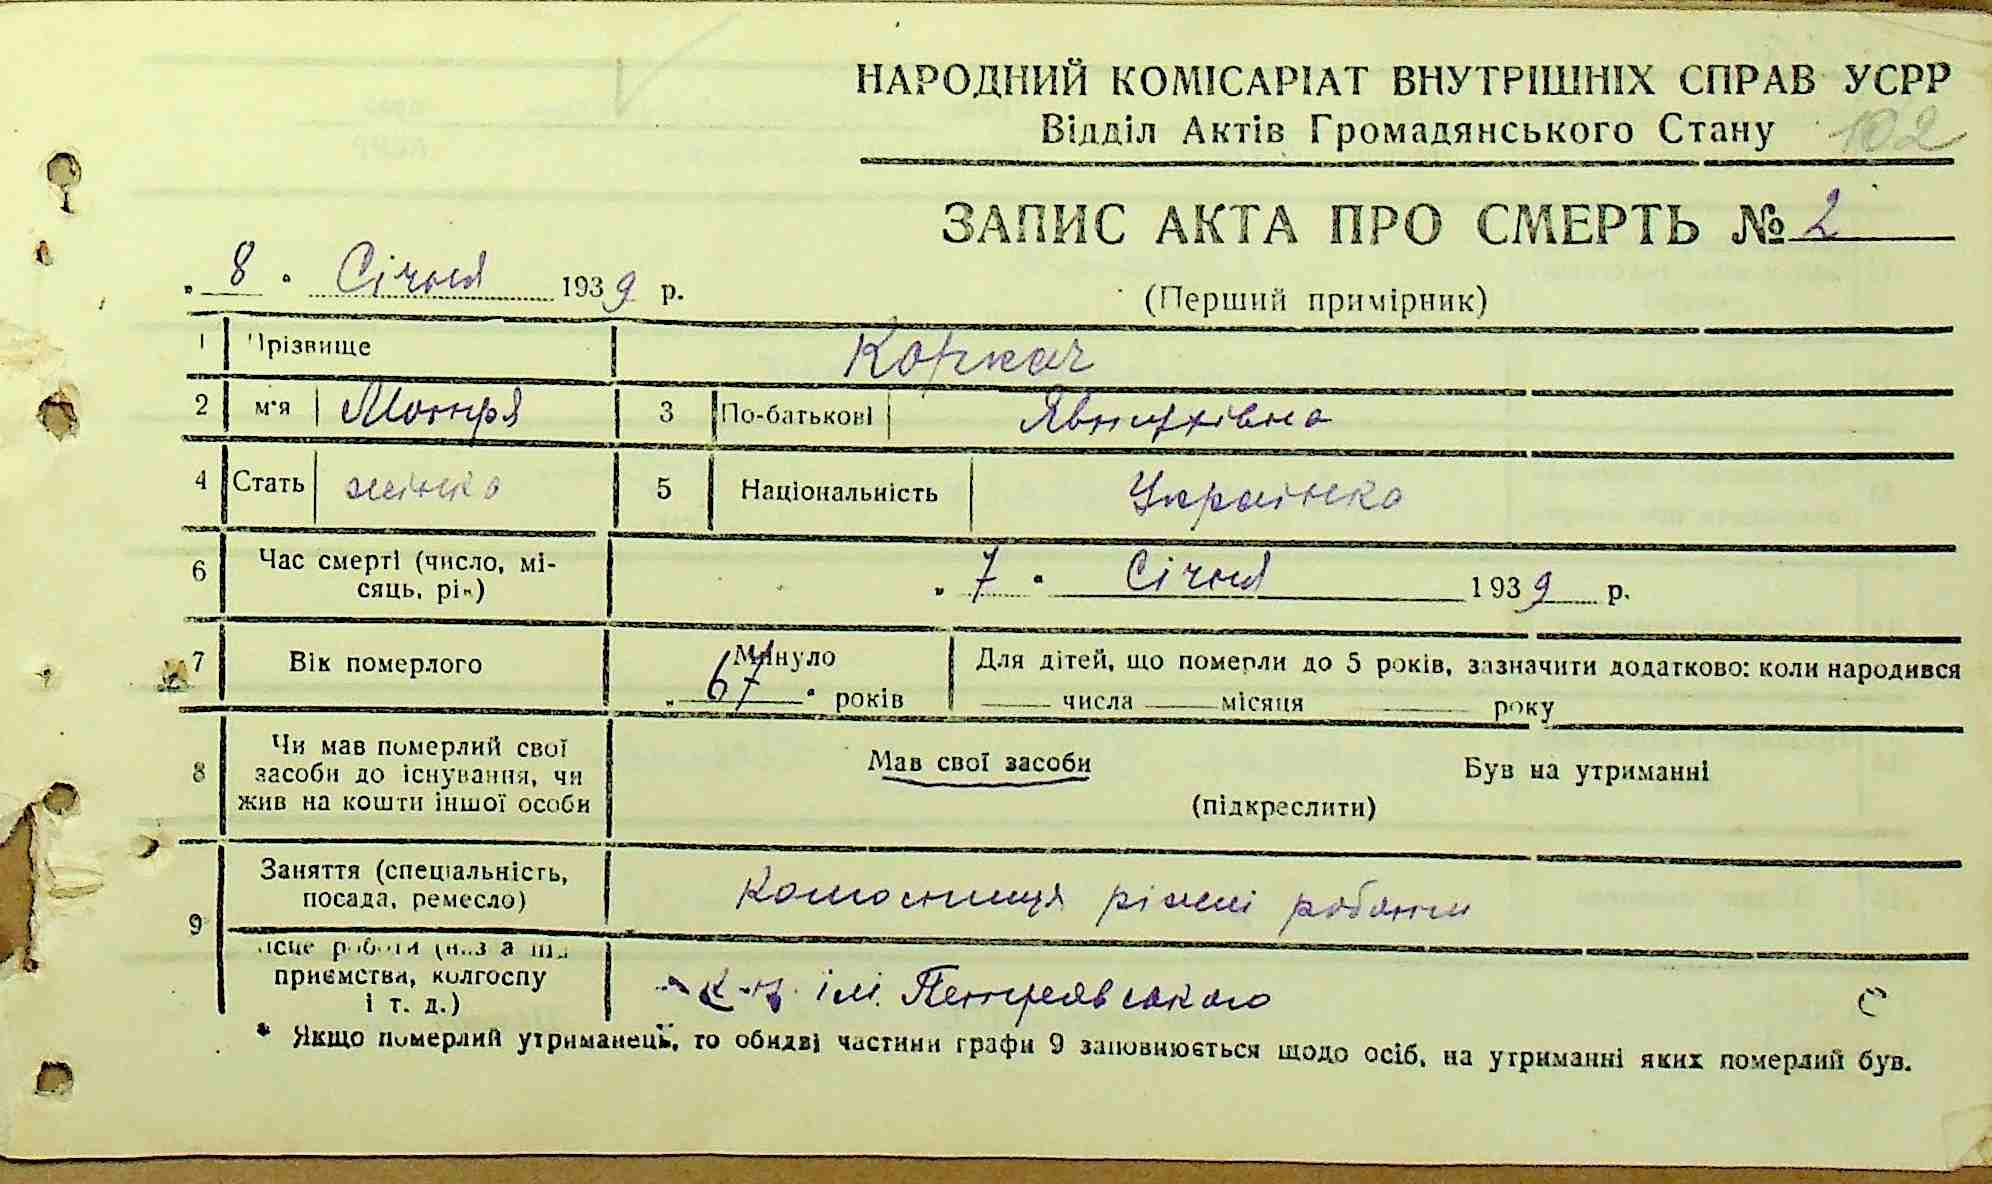 НАРОДНИЙ КОМІСАРІАТ ВНУТРІШНІХ СПРАВ УСРР
Відділ Актів Громадянського Стану 102
ЗАПИС АКТА ПРО СМЕРТЬ № 2
„ 8 " Січня 1939 р.
(Перший примірник)
1 Прізвище Коркач
2 м'я Мотря 3 По-батькові Явтухівна
4 Стать жінка 5 Національність Українка
6 Час смерті (число, мі-
сяць, рік) „ 7 " Січня 1939 р.
7 Вік померлого Минуло
„ 67 " років
Для дітей, що померли до 5 років, зазначити додатково: коли народився
числа місяця року
8 Чи мав померлий свої
засоби до існування, чи
жив на кошти іншої особи
Мав свої засоби Був на утриманні
(підкреслити)
9 Заняття (спеціальність,
посада, ремесло) колгоспниця ріжні роботи
місце роботи (назва під
приємства, колгоспу
і т. д.) ім. Петровського
* Якщо померлий утриманець, то обидві частини графи 9 заповнюється щодо осіб, на утриманні яких померлий був.